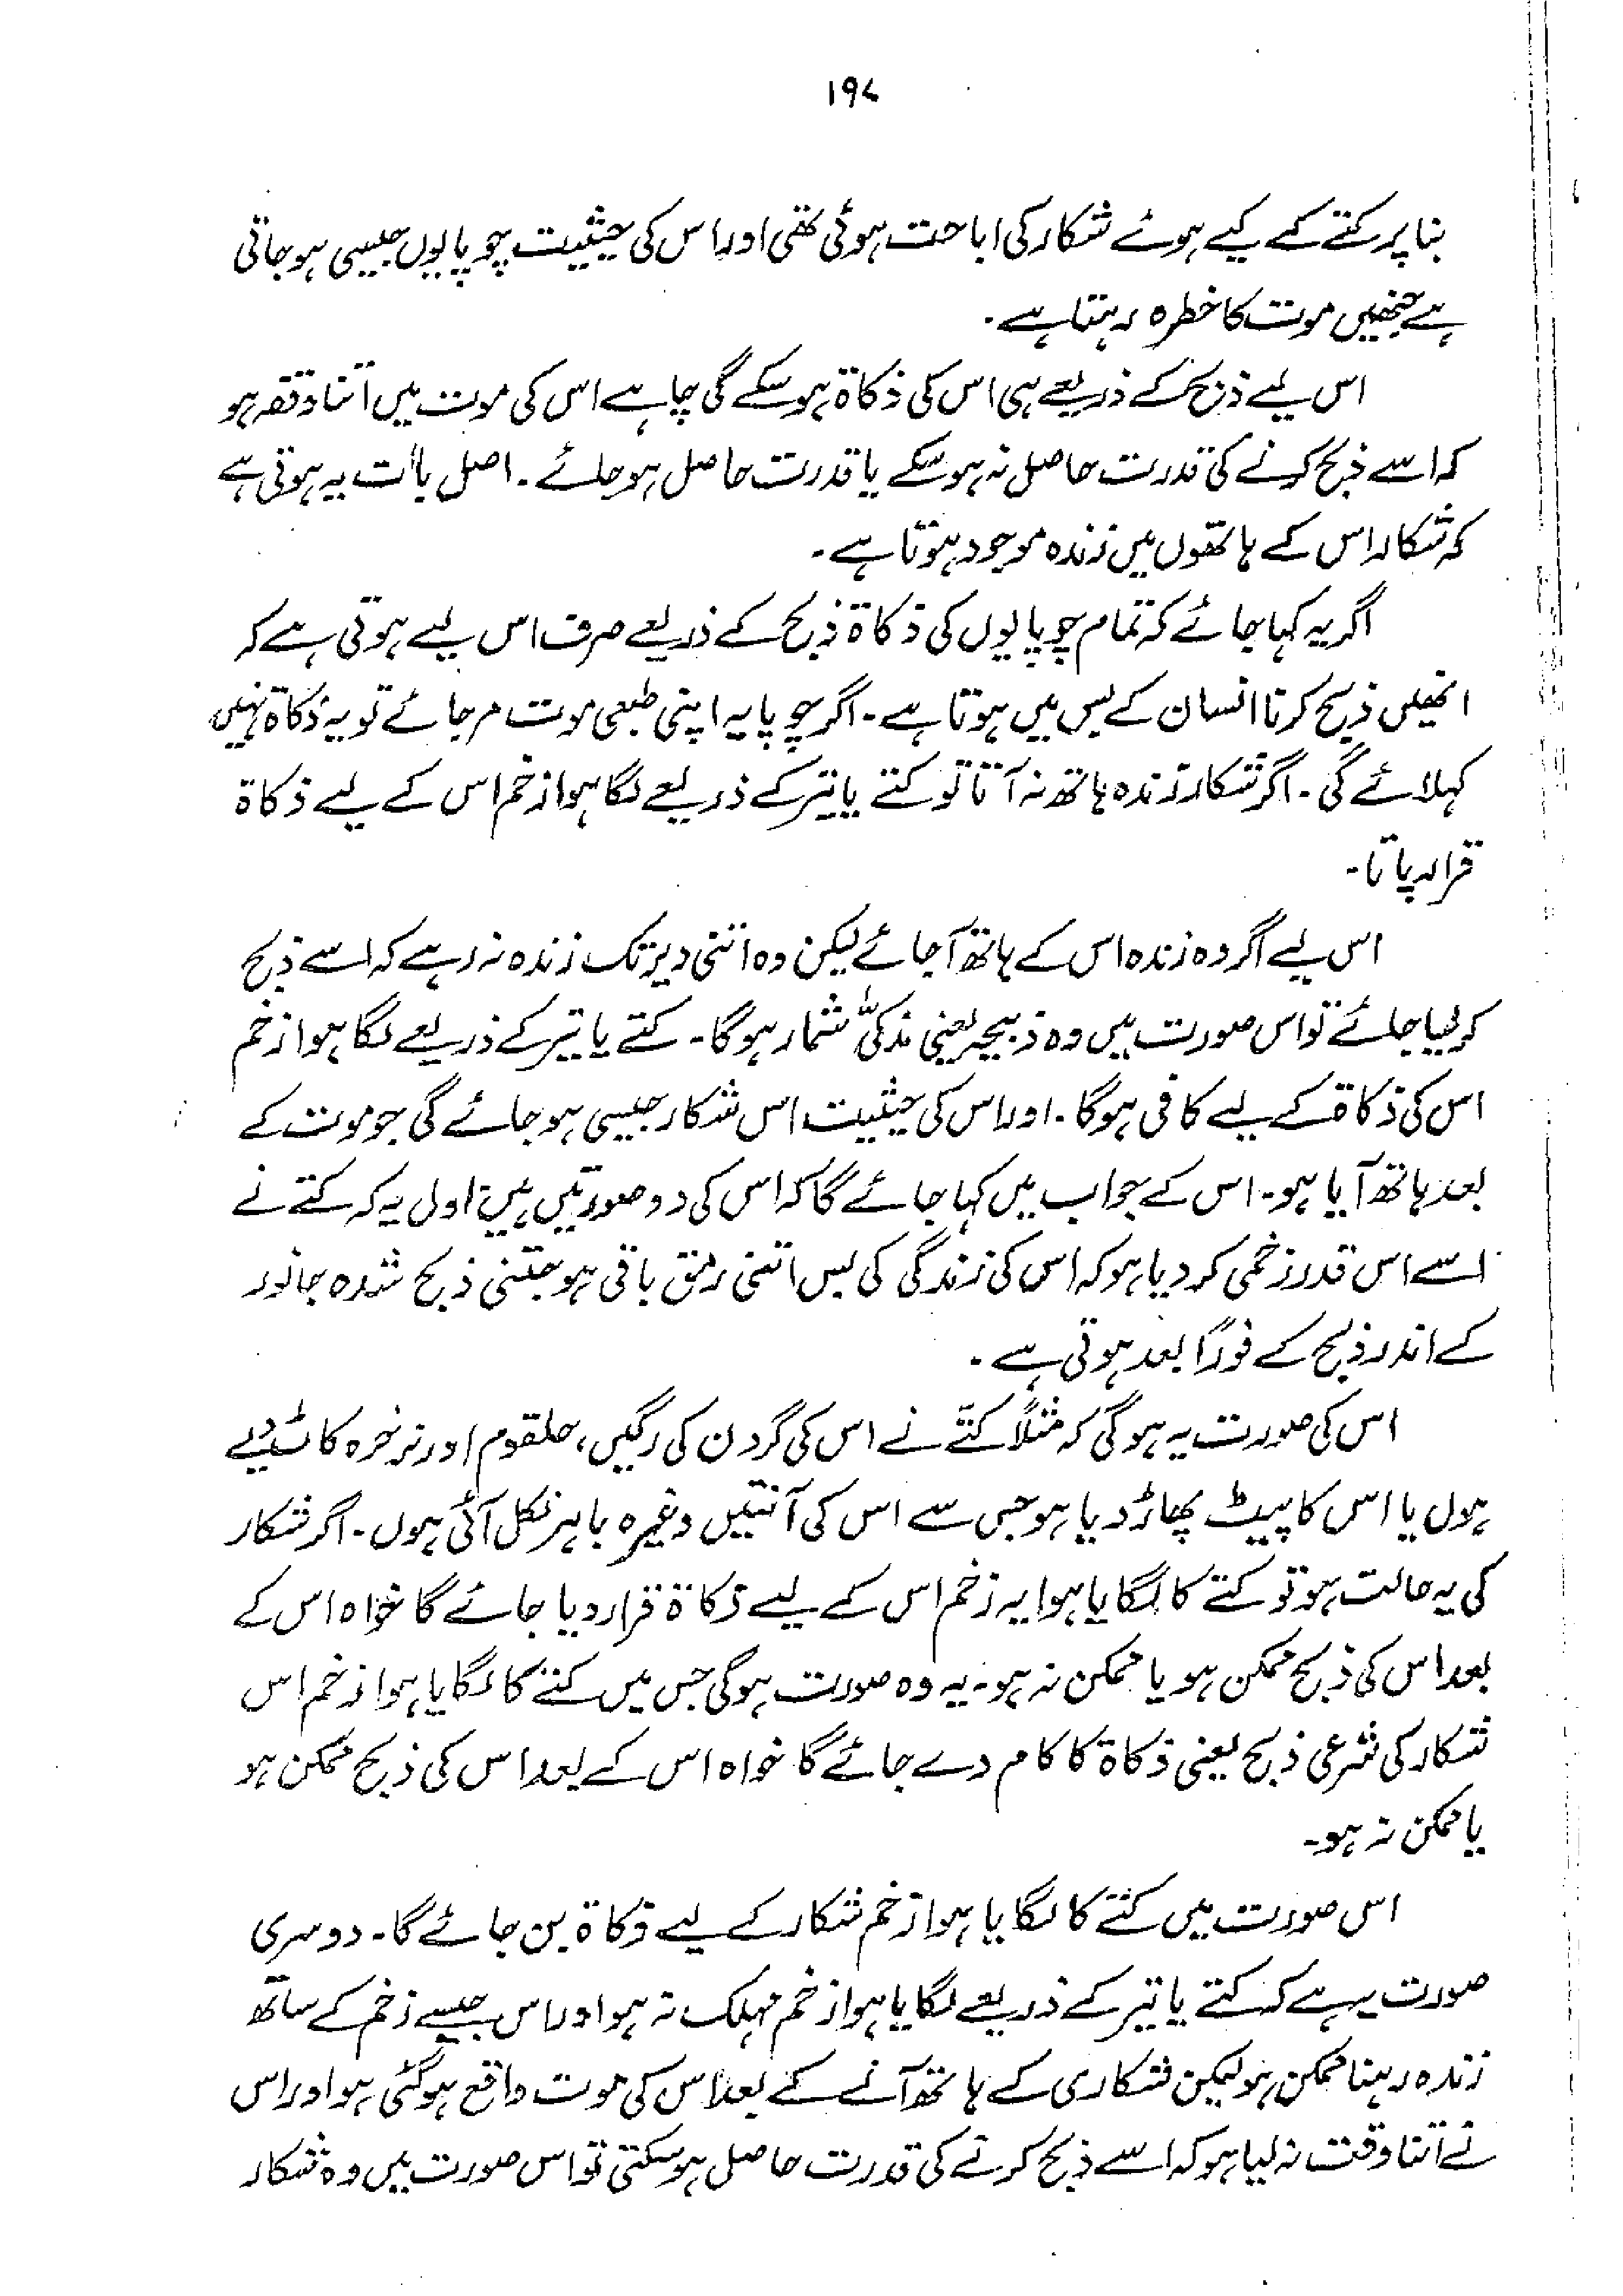 ۱۹۷
بنا پر کتے کے کیے ہوئے شکار کی اباحت ہوئی تھی اور اس کی حیثیت چوپایوں جیسی ہو جاتی
ہے جنھیں موت کا خطرہ رہتا ہے۔
اس لیے ذبح کے ذریعے ہی اس کی ذکاۃ ہو سکے گی چاہے اس کی موت میں اتنا وقفہ ہو
کہ اسے ذبح کرنے کی قدرت حاصل نہ ہو سکے یا قدرت حاصل ہو جائے۔ اصل بات یہ ہوتی ہے
کہ شکار اس کے ہاتھوں میں زندہ موجود ہوتا ہے۔
اگر یہ کہا جائے کہ تمام چوپایوں کی ذکاۃ ذبح کے ذریعے صرف اس لیے ہوتی ہے کہ
انھیں ذبح کرنا انسان کے بس میں ہوتا ہے۔ اگر چوپایہ اپنی طبعی موت مر جائے تو یہ ذکاۃ نہیں
کہلائے گی۔ اگر شکار زندہ ہاتھ نہ آتا تو کتے یا تیر کے ذریعے لگا ہوا زخم اس کے لیے ذکاۃ
قرار پاتا۔
اس لیے اگر وہ زندہ اس کے ہاتھ آجائے لیکن وہ اتنی دیر تک زندہ نہ رہے کہ اسے ذبح
کر لیا جائے تو اس صورت میں وہ ذبیحہ یعنی مذکیّٰ شمار ہوگا۔ کتے یا تیر کے ذریعے لگا ہوا زخم
اس کی ذکاۃ کے لیے کافی ہوگا۔ اور اس کی حیثیت اس شکار جیسی ہو جائے گی جو موت کے
بعد ہاتھ آیا ہو۔ اس کے جواب میں کہا جائے گا کہ اس کی دو صورتیں ہیں: اول یہ کہ کتے نے
اسے اس قدر زخمی کر دیا ہو کہ اس کی زندگی کی بس اتنی رمق باقی ہو جتنی ذبح شدہ جانور
کے اندر ذبح کے فوراً بعد ہوتی ہے۔
اس کی صورت یہ ہوگی کہ مثلاً کتّے نے اس کی گردن کی رگیں، حلقوم اور نرخرہ کاٹ دیے
ہوں یا اس کا پیٹ پھاڑ دیا ہو جس سے اس کی آنتیں وغیرہ باہر نکل آئی ہوں۔ اگر شکار
کی یہ حالت ہو تو کتے کا لگایا ہوا یہ زخم اس کے لیے ذکاۃ قرار دیا جائے گا خواہ اس کے
بعد اس کی ذبح ممکن ہو یا ممکن نہ ہو۔ یہ وہ صورت ہوگی جس میں کتے کا لگایا ہوا زخم اس
شکار کی شرعی ذبح یعنی ذکاۃ کا کام دے جائے گا خواہ اس کے بعد اس کی ذبح ممکن ہو
یا ممکن نہ ہو۔
اس صورت میں کتے کا لگایا ہوا زخم شکار کے لیے ذکاۃ بن جائے گا۔ دوسری
صورت یہ ہے کہ کتے یا تیر کے ذریعے لگایا ہوا زخم مہلک نہ ہو اور اس جیسے زخم کے ساتھ
زندہ رہنا ممکن ہو لیکن شکاری کے ہاتھ آنے کے بعد اس کی موت واقع ہو گئی ہو اور اس
نے اتنا وقت نہ لیا ہو کہ اسے ذبح کرنے کی قدرت حاصل ہو سکتی تو اس صورت میں وہ شکار